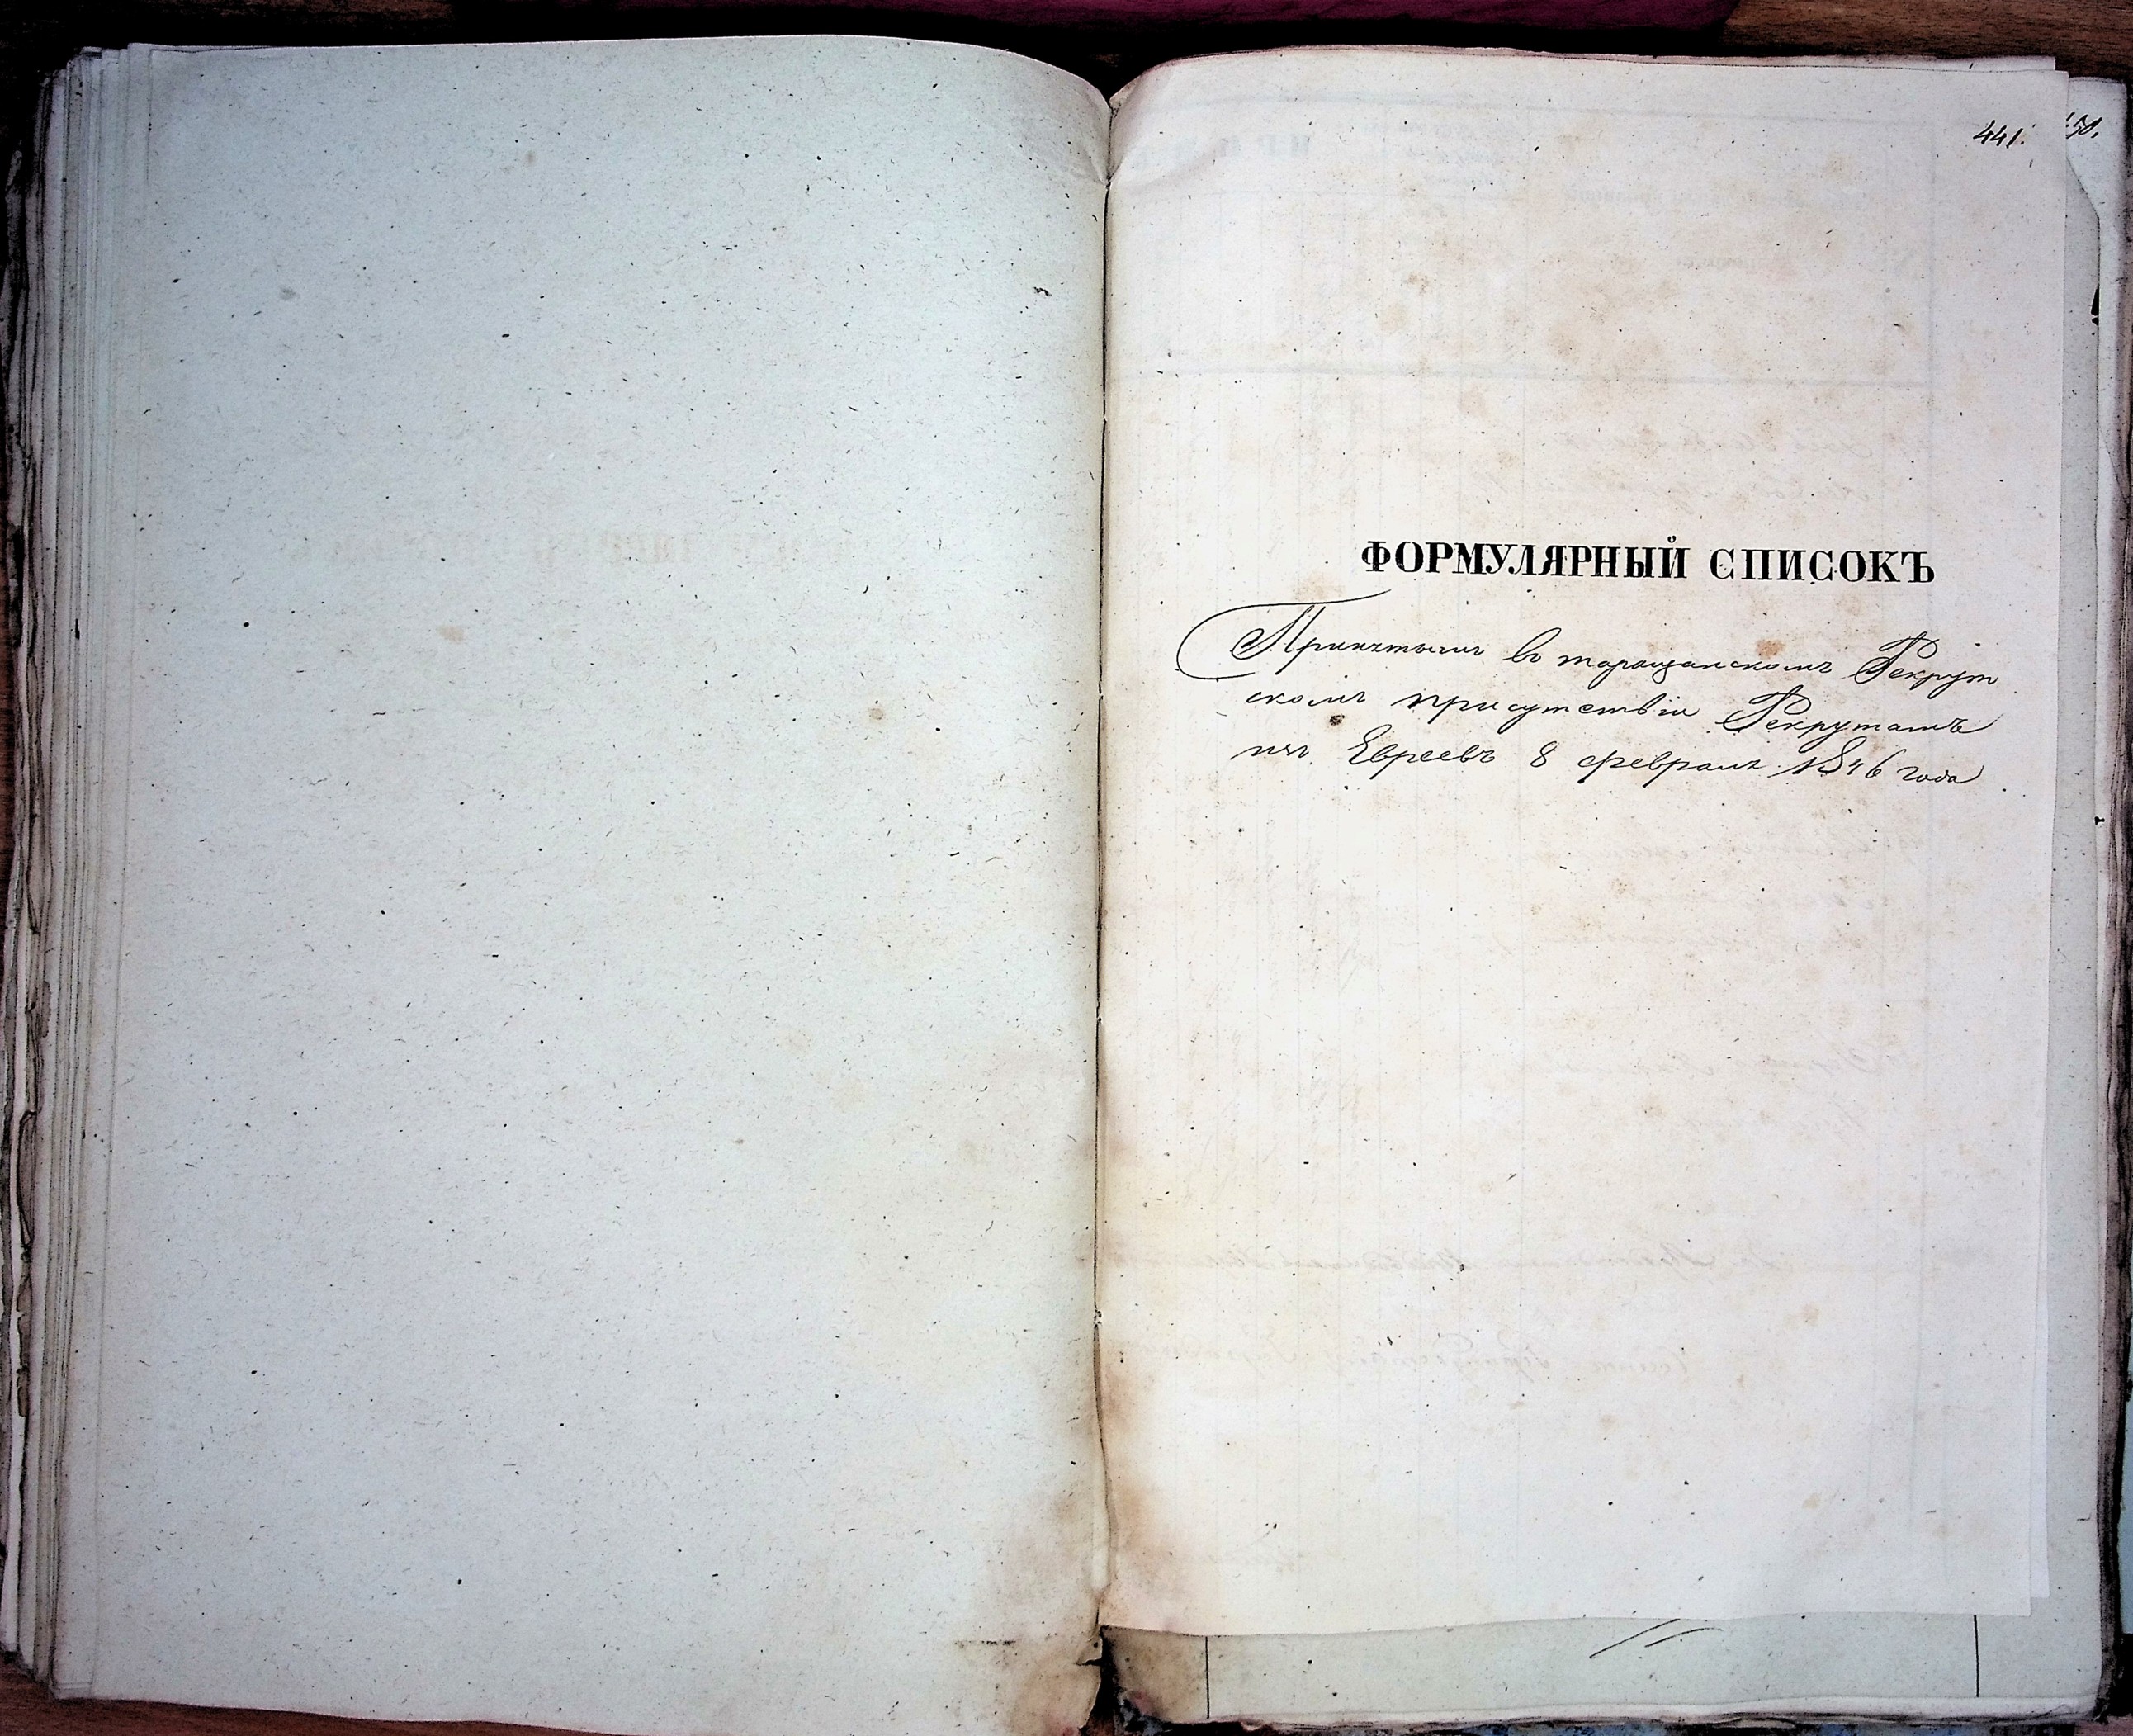 441.
50.
ФОРМУЛЯРНЫЙ СПИСОКЪ
Принятымъ въ таращанскомъ Рекрут
скомъ присутствіи Рекрутамъ
изъ Евреевъ 8 февраля 1846 года